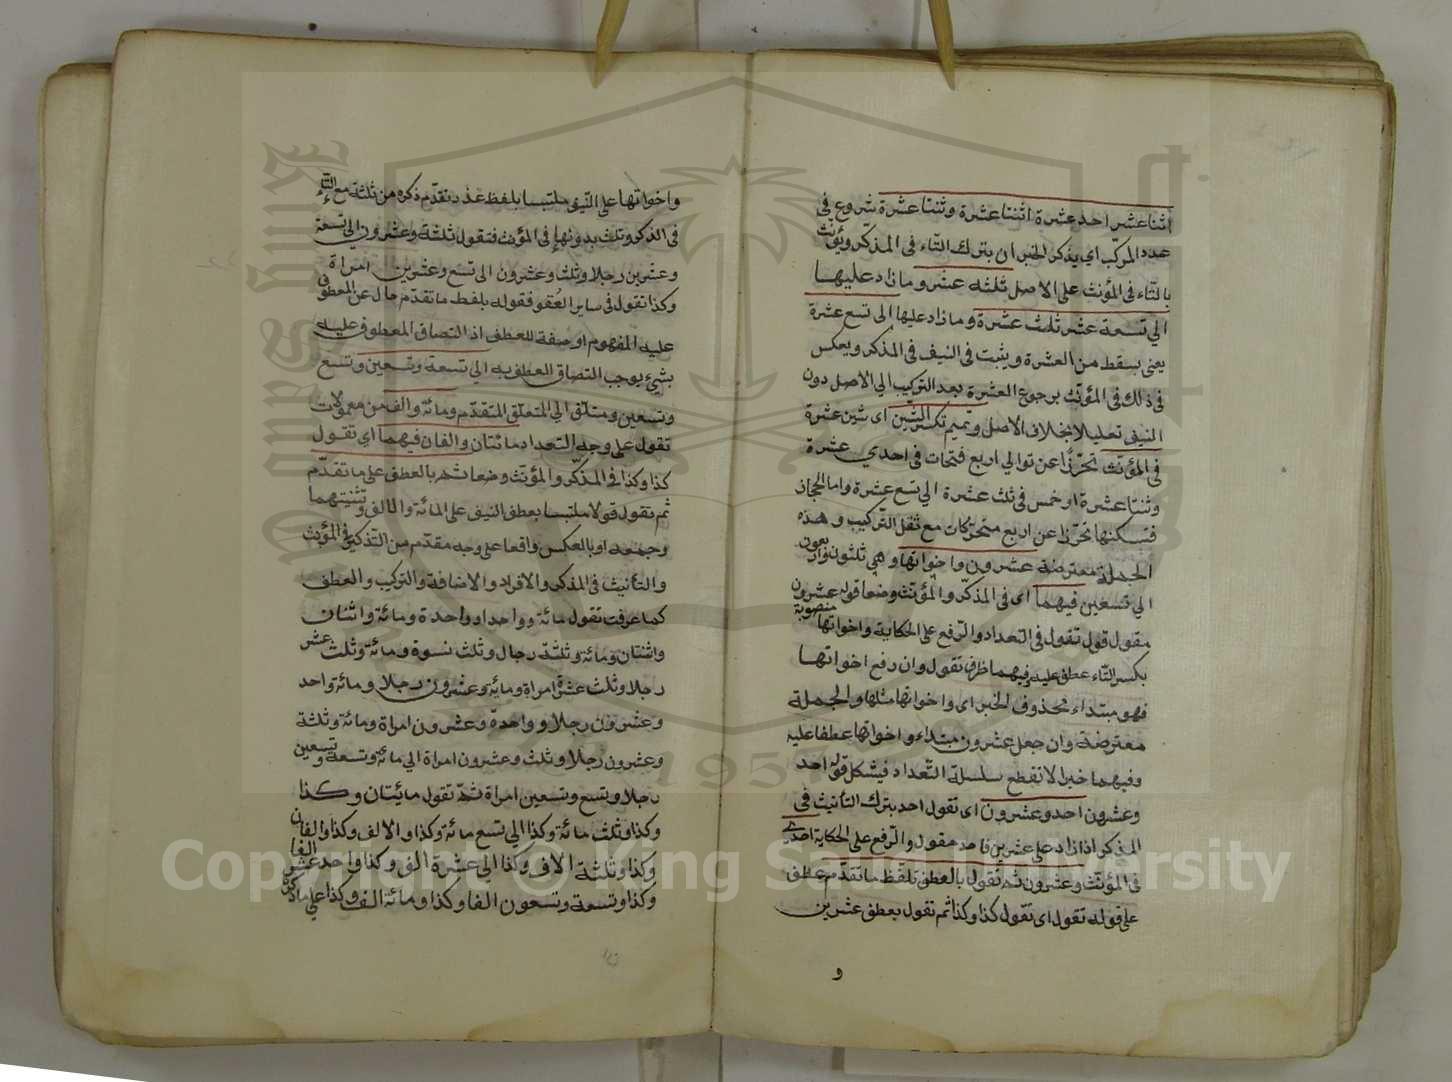 اثنا عشر احد عشرة اثنتا عشرة وثنتا عشرة شروع في
عدد المركب اي يذكر الجزان بترك التاء في المذكر ويؤنث
بالتاء في المؤنث على الاصل ثلثة عشر وما زاد عليها
الى تسعة عشر ثلث عشرة وما زاد عليها الى تسع عشرة
يعني يسقط من العشرة ويثبت في النيف في المذكر ويعكس
في ذلك في المؤنث برجوع العشرة بعد التركيب الى الاصل دون
النيف بخلاف الاصل وتميم تكسر الشين اى شين عشرة
في المؤنث تحرزا عن توالي اربع فتحات في احدى عشرة
وثنتا عشرة او خمس في ثلث عشرة الى تسع عشرة واما الحجاز
فتسكنها تحرزا عن اربع متحركات مع ثقل التركيب وهذه
الجملة معترضة عشرون واخواتها وهي ثلثون واربعون
الى تسعين فيهما اى في المذكر والمؤنث وضعا قوله عشرون
مقول قول تقول في التعداد والرفع على الحكاية واخواتها منصوبة
بكسر التاء عطف عليه وفيهما ظرف تقول وان رفع اخواتها
فهو مبتداء محذوف الخبر اى واخواتها مثلها والجملة
معترضة وان جعل عشرون مبتداء واخواتها عطفا عليه
وفيهما خبرا لانقطع سلسلة التعداد فيشكل قوله احد
وعشرون احد وعشرون اى تقول احد بترك التأنيث في
المذكر اذا زاد على عشرين فاحد مقول والرفع على الحكاية احدى
في المؤنث وعشرون ثم تقول بالعطف بلفظ ما تقدم عطف
على قوله تقول اى تقول كذا وكذا ثم تقول بعطف عشرين
و
واخواتها على النيف ملتبسا بلفظ عدد تقدم ذكره من ثلثة مع التاء
في الذكر وثلث بدونها في المؤنث فتقول ثلثة وعشرون الى تسعة
وعشرين رجلا وثلث وعشرون الى تسع وعشرين امراة
وكذا تقول في ساير العقود فقوله بلفظ ما تقدم حال عن المعطوف
عليه المفهوم او صفة للعطف اذ التصاق المعطوف عليه
بشيء يوجب التصاق العطف به الى تسعة وتسعين وتسع
وتسعين ومتعلق الى المتعلق المتقدم ومائة والف من معمولات
تقول على وجه التعداد مائتان والفان فيهما اى تقول
كذا وكذا في المذكر والمؤنث وضعا ثم بالعطف على ما تقدم
ثم تقول قولا ملتبسا بعطف النيف على المائة والالف وتثنيتهما
وجمعه او بالعكس واقعا على وجه مقدم من التذكير في المؤنث
والتأنيث في المذكر والافراد والاضافة والتركيب والعطف
كما عرفت تقول مائة وواحد او واحدة ومائة واثنان
واثنتان ومائة وثلثة رجال وثلث نسوة ومائة وثلث عشر
رجلا وثلث عشرة امراة ومائة وعشرون رجلا ومائة واحد
وعشرون رجلا وواحدة وعشرون امراة ومائة وثلثة
وعشرون رجلا وثلث وعشرون امراة الى مائة وتسعة وتسعين
رجلا وتسع وتسعين امراة ثم تقول مائتان وكذا
وكذا وثلث مائة وكذا الى تسع مائة وكذا والالف وكذا والفان
وكذا وثلثة الاف وكذا الى عشرة الف وكذا واحد عشر الفا
وكذا وتسعة وتسعون الفا وكذا ومائة الف وكذا على ما ذكر
Copyright © King Saud University
King Saud University
1957